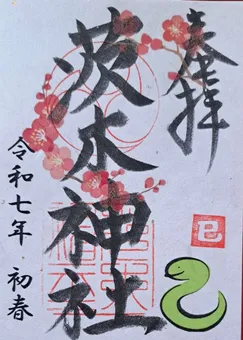 奉拝
茨木神社
巳
令和七年 初春